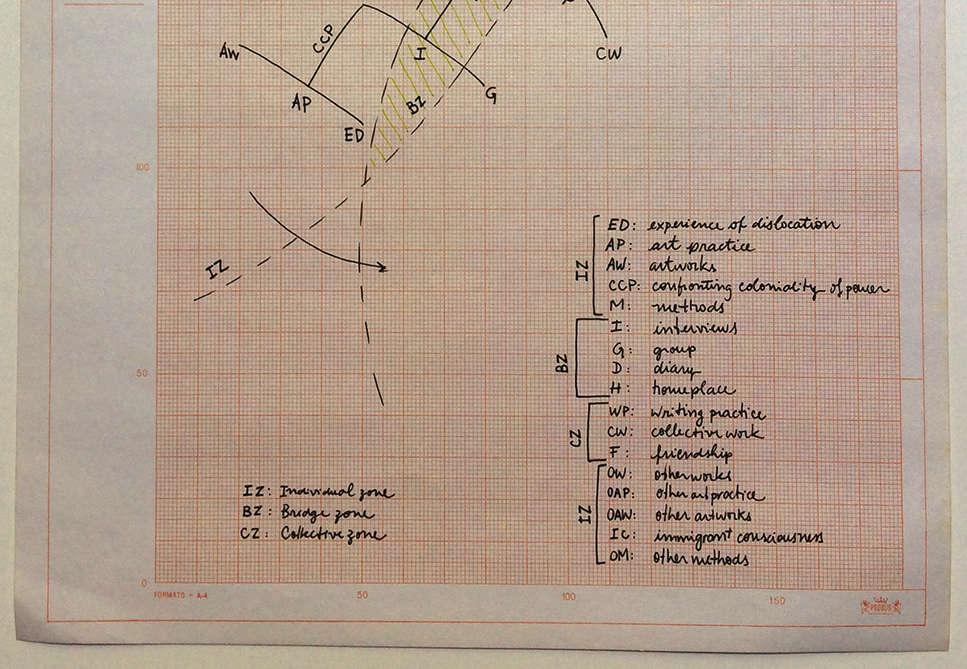 CCP
AW
I
CW
AP
BZ
G
ED
100
IZ
IZ
ED: experience of dislocation
AP: art practice
AW: artworks
CCP: confronting coloniality of power
M: methods
BZ
I: interviews
G: group
D: diary
H: homeplace
CZ
WP: writing practice
CW: collective work
F: friendship
IZ
OW: otherworks
OAP: other art practice
OAW: other artworks
IC: immigrant consciousness
OM: other methods
50
IZ: Individual zone
BZ: Bridge zone
CZ: Collective zone
0
FORMATO - A-4
50
100
150